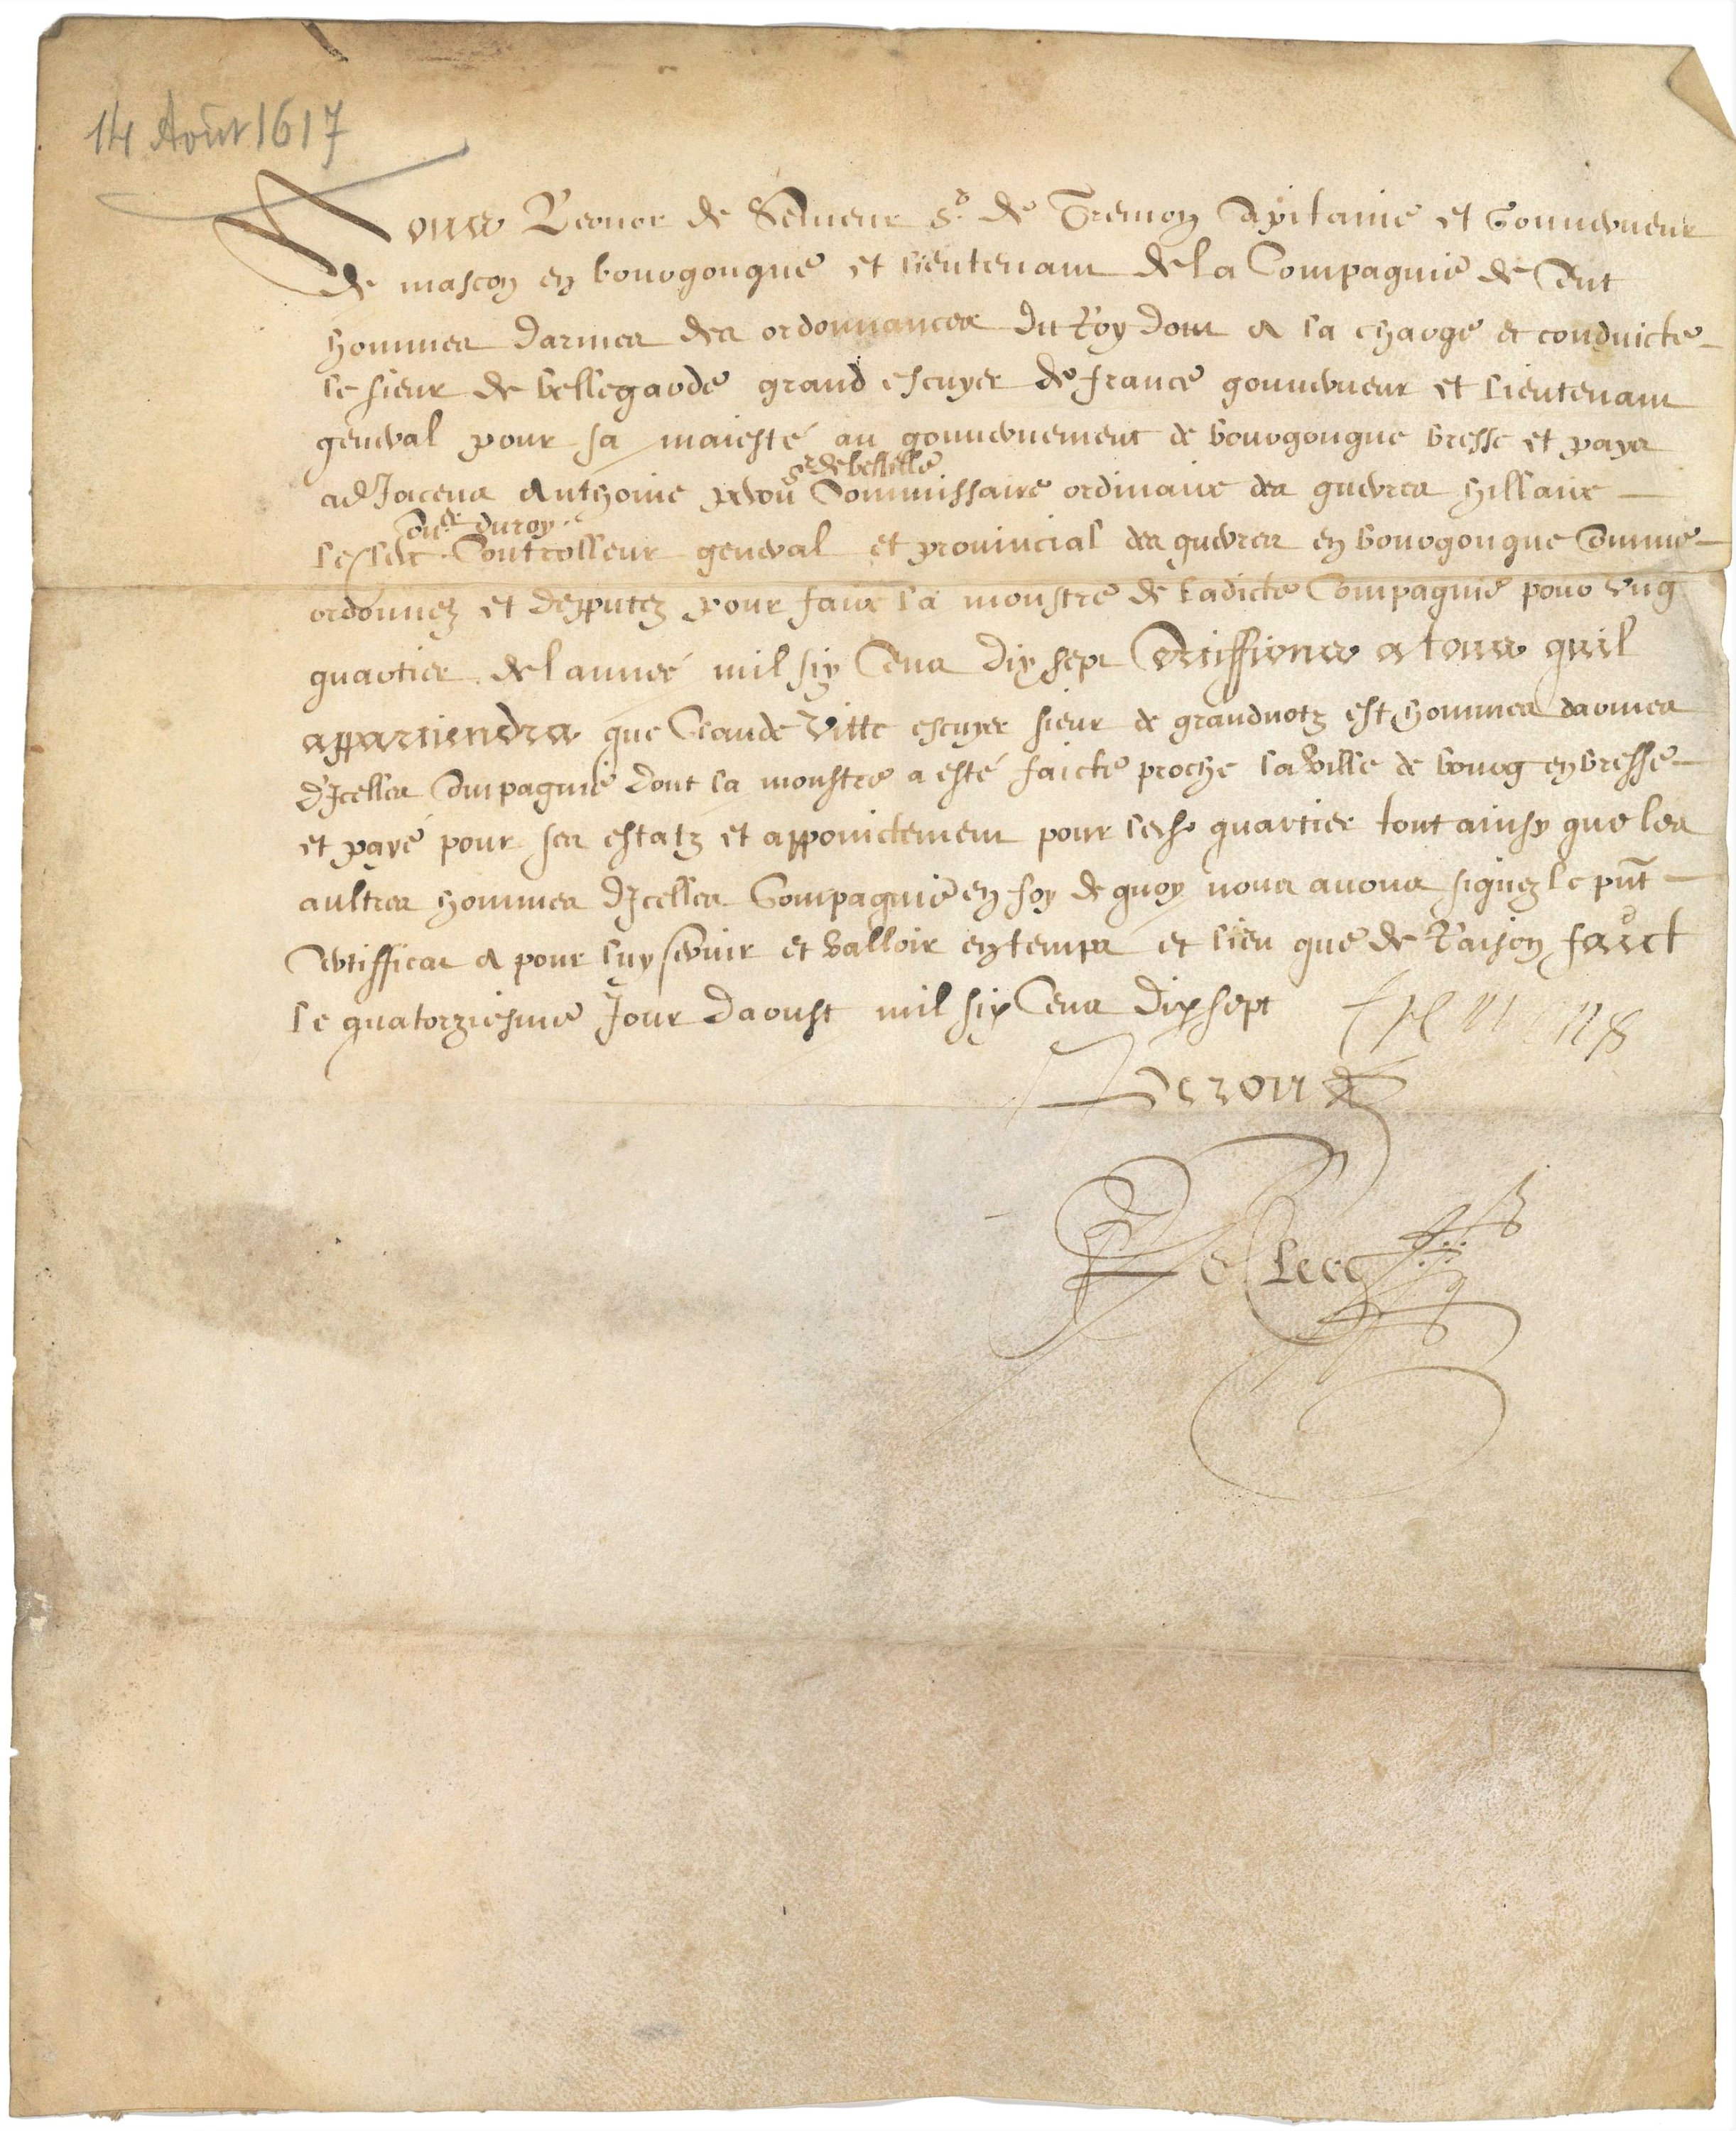 14 Août 1617
Nous Leonor de Semeur Sr de Tremon Capitaine et Gouverneur
de mascon en bourgongne et lieutenant de la Compagnie de Cent
hommes darmes des ordonnances du Roy dont a la charge et conduicte
le sieur de bellegarde grand escuyer de france gouverneur et lieutenant
general pour sa maiesté au gouvernement de bourgongne bresse et pays
Sr de
adJacens Anthoine Commissaire ordinaire des guerres hillaire
duroy
le clerc Controlleur general et provincial des guerres en bourgongne Comme
ordonnez et depputez pour faire la monstre de ladicte Compagnie pour ung
quartier de lannee mil six Cens dix sept Certiffions a tous quil
appartiendra que Claude Vitte escuyer sieur de grandnotz est hommes darmes
dJcelles Compagnie dont la monstre a esté faicte proche la ville de bourg en bresse
et payé pour ses estatz et appoinctement pour led quartier tout ainsy que les
aultres hommes dJcelles Compagnie en foy de quoy nous avons signez le pnt
Certifficat a pour luy servir et valloir en temps et lieu que de Raison faict
le quatorziesme Jour daoust mil six Cens dix sept
Le Clerc